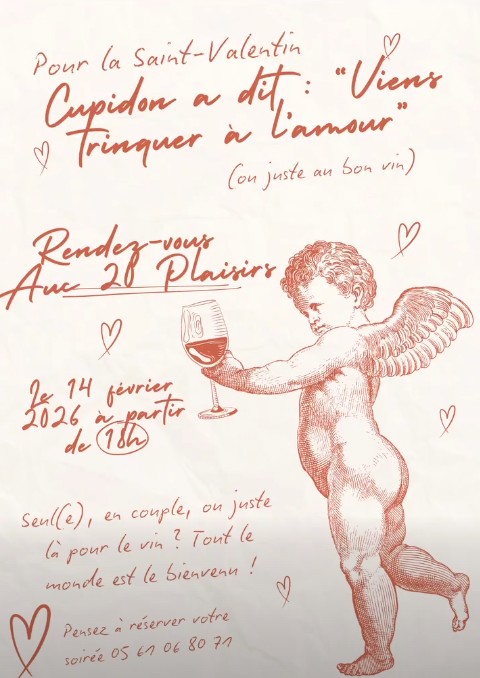 Pour la Saint-Valentin
Cupidon a dit : "Viens
trinquer à l'amour"
(ou juste au bon vin)
Rendez-vous
Auc 20 Plaisirs
Le 14 février
2026 à partir
de 18h
Seul(e), en couple, ou juste
là pour le vin ? Tout le
monde est le bienvenu !
Pensez à réserver votre
soirée 05 61 06 80 71